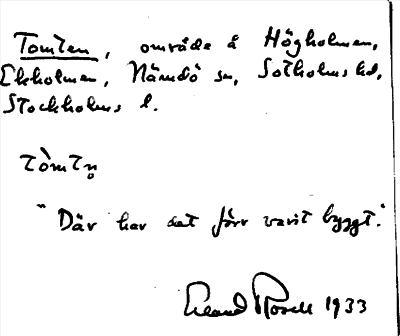 Tomten, område å Högholmen,
Ekholmen, Nämdö sn, Sotholms hd,
Stockholms l.
tòmtn̥
"Där har det förr varit byggt."
Erland Rosell 1933